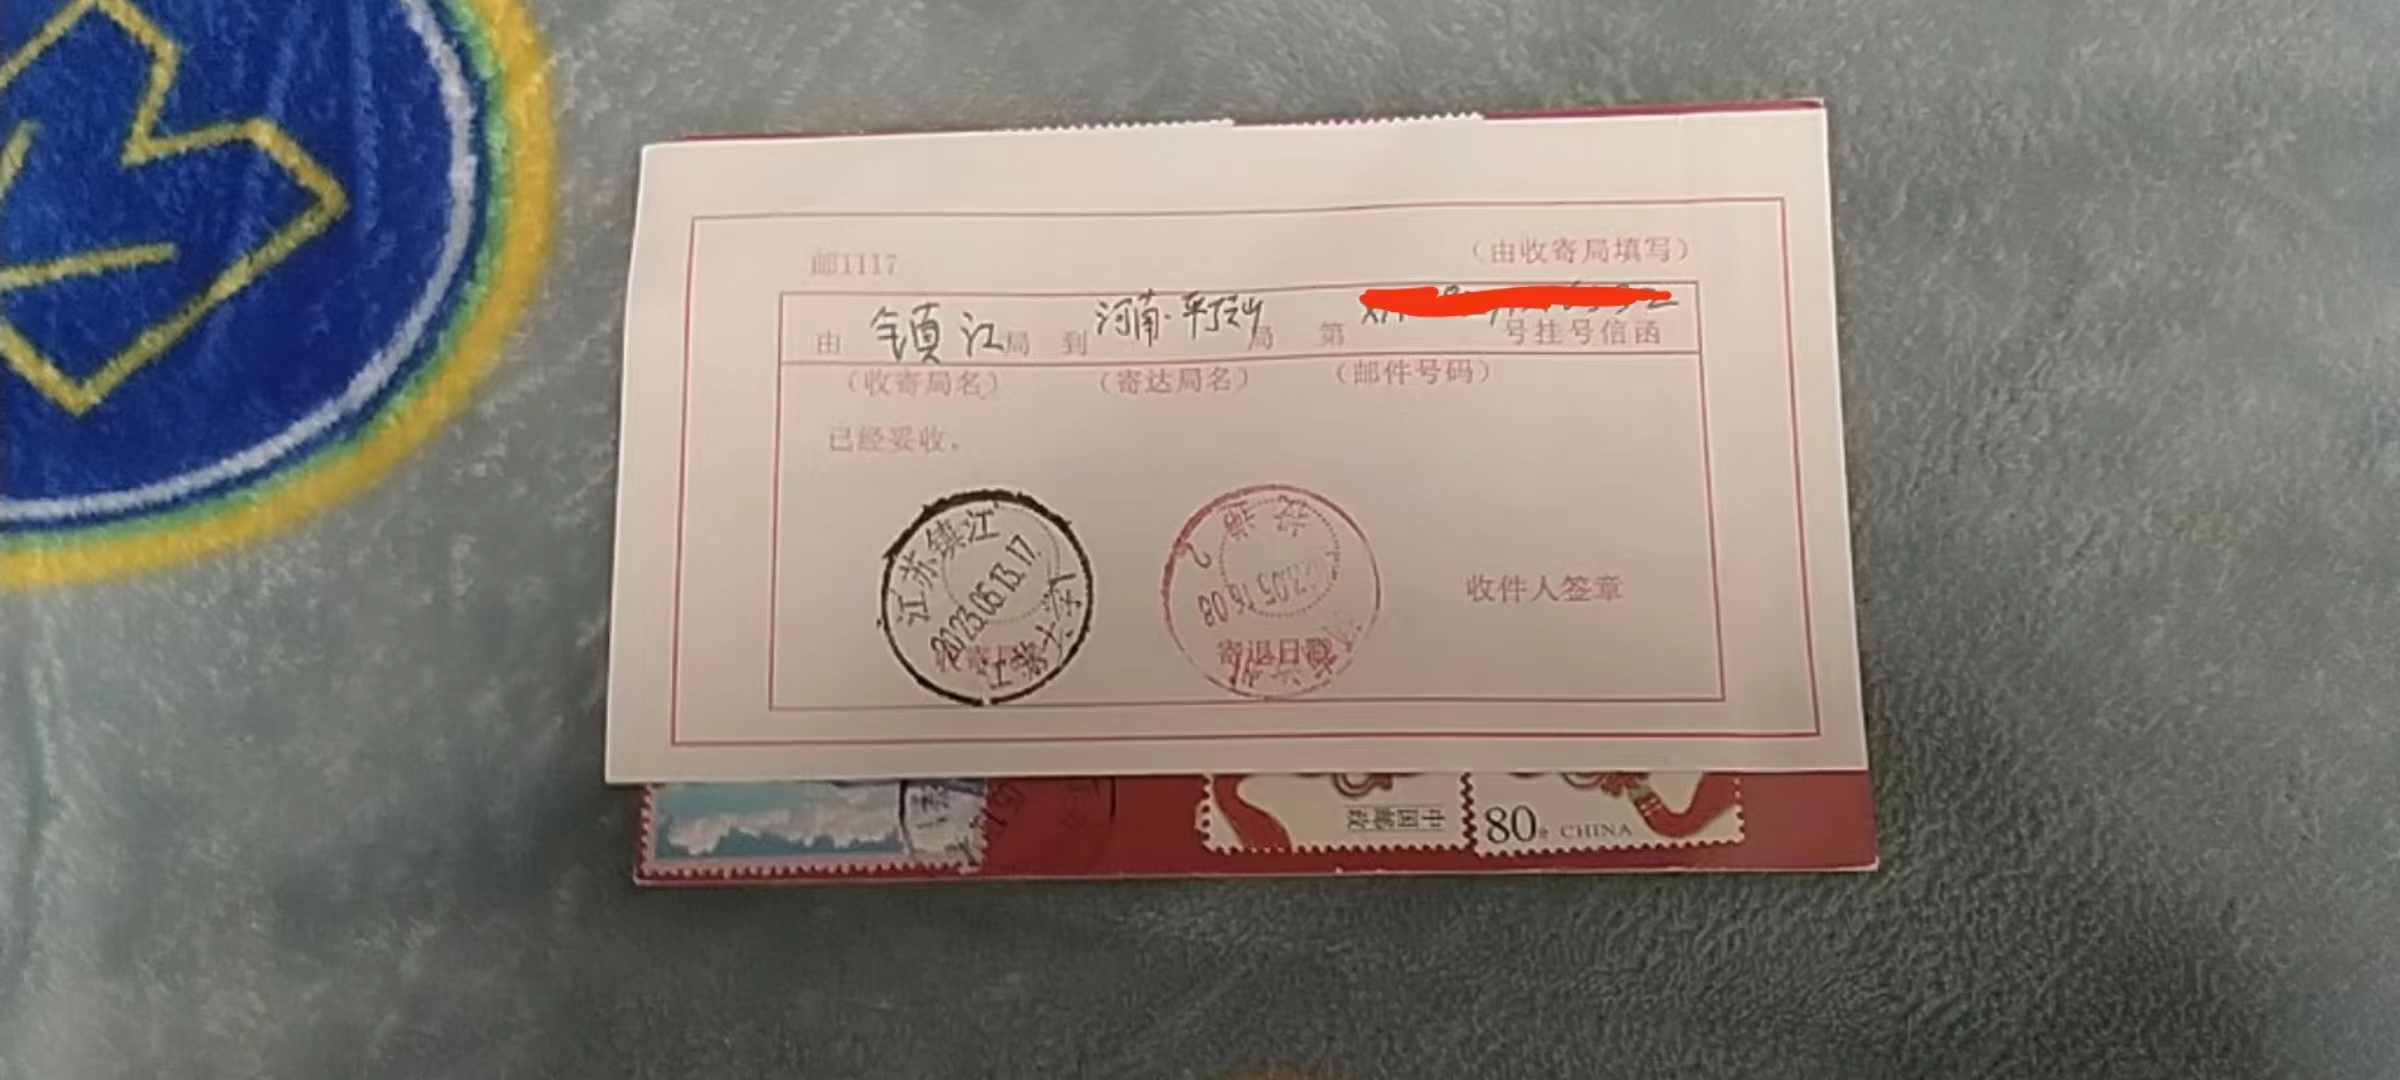 邮1117
（由收寄局填写）
由 镇江局 到 河南·平顶山局 第 号挂号信函
（收寄局名） （寄达局名） （邮件号码）
已经妥收。
江苏镇江
2023.05.13.17
江苏大学
寄退日戳
收件人签章
中国邮政
80分 CHINA